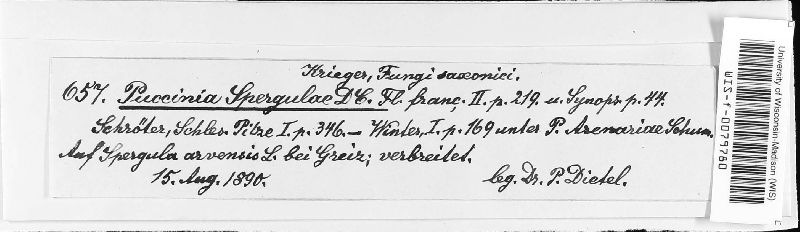 Krieger, Fungi saxonici.
657. Puccinia Spergulae DC. Fl. franç. II. p. 219. u. Synops. p. 44.
Schröter, Schles. Pilze I. p. 346. — Winter, I. p. 169 unter P. Arenariae Schum.
Auf Spergula arvensis L. bei Greiz; verbreitet.
15. Aug. 1890. leg. Dr. P. Dietel.
University of Wisconsin-Madison (WIS)
WIS-f-0079760